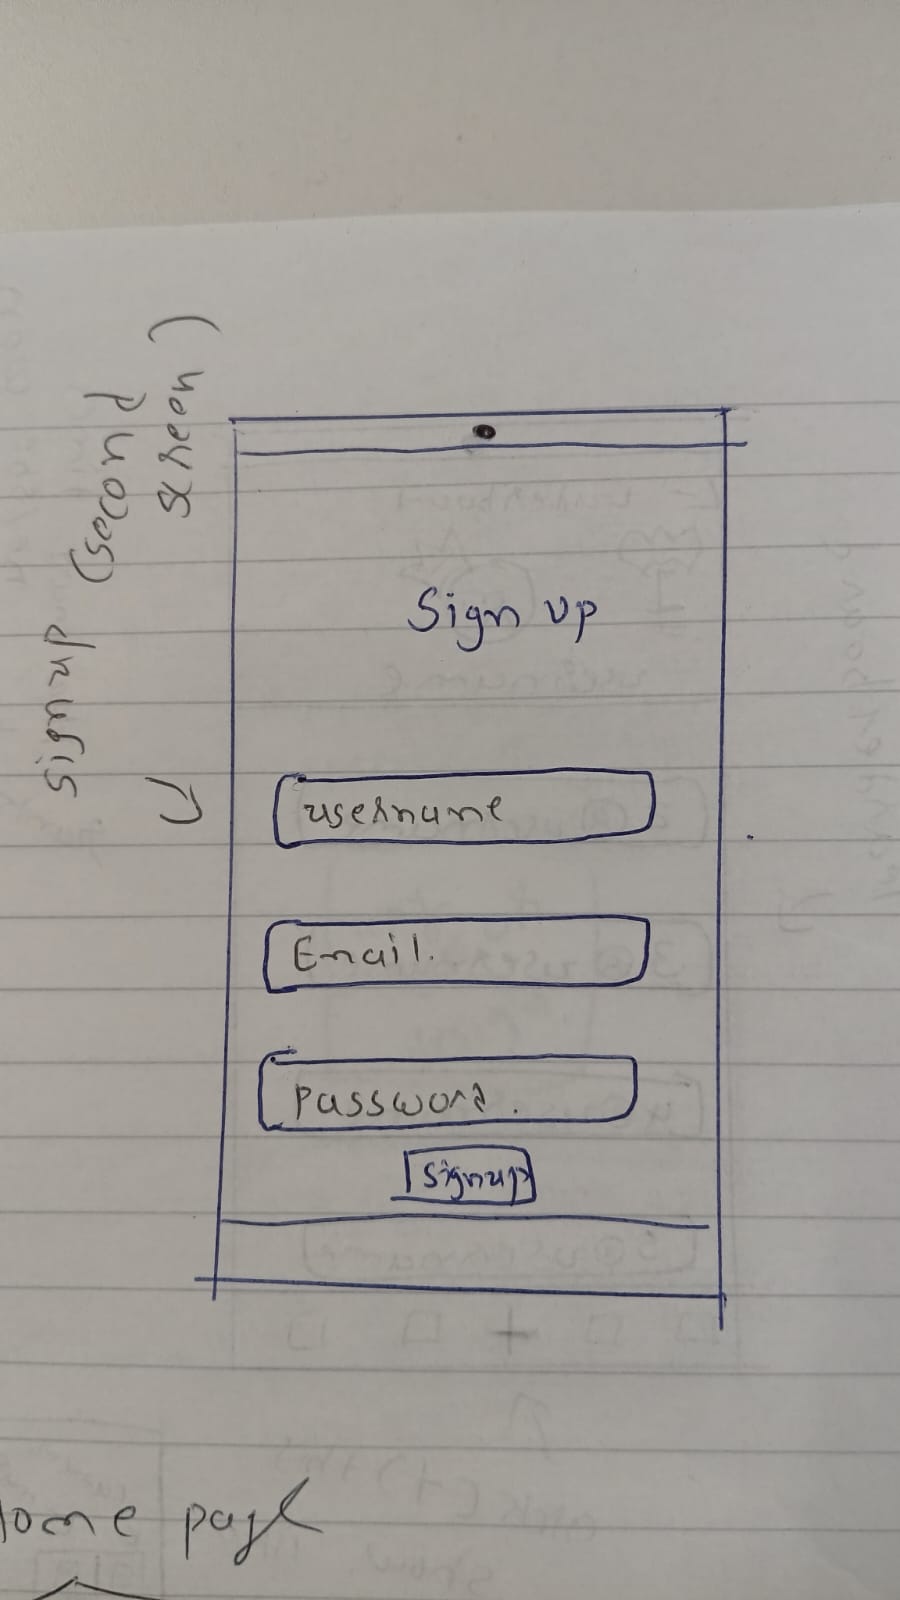 signup (second
screen)
Sign up
username
Email.
Password.
Signup
Home page